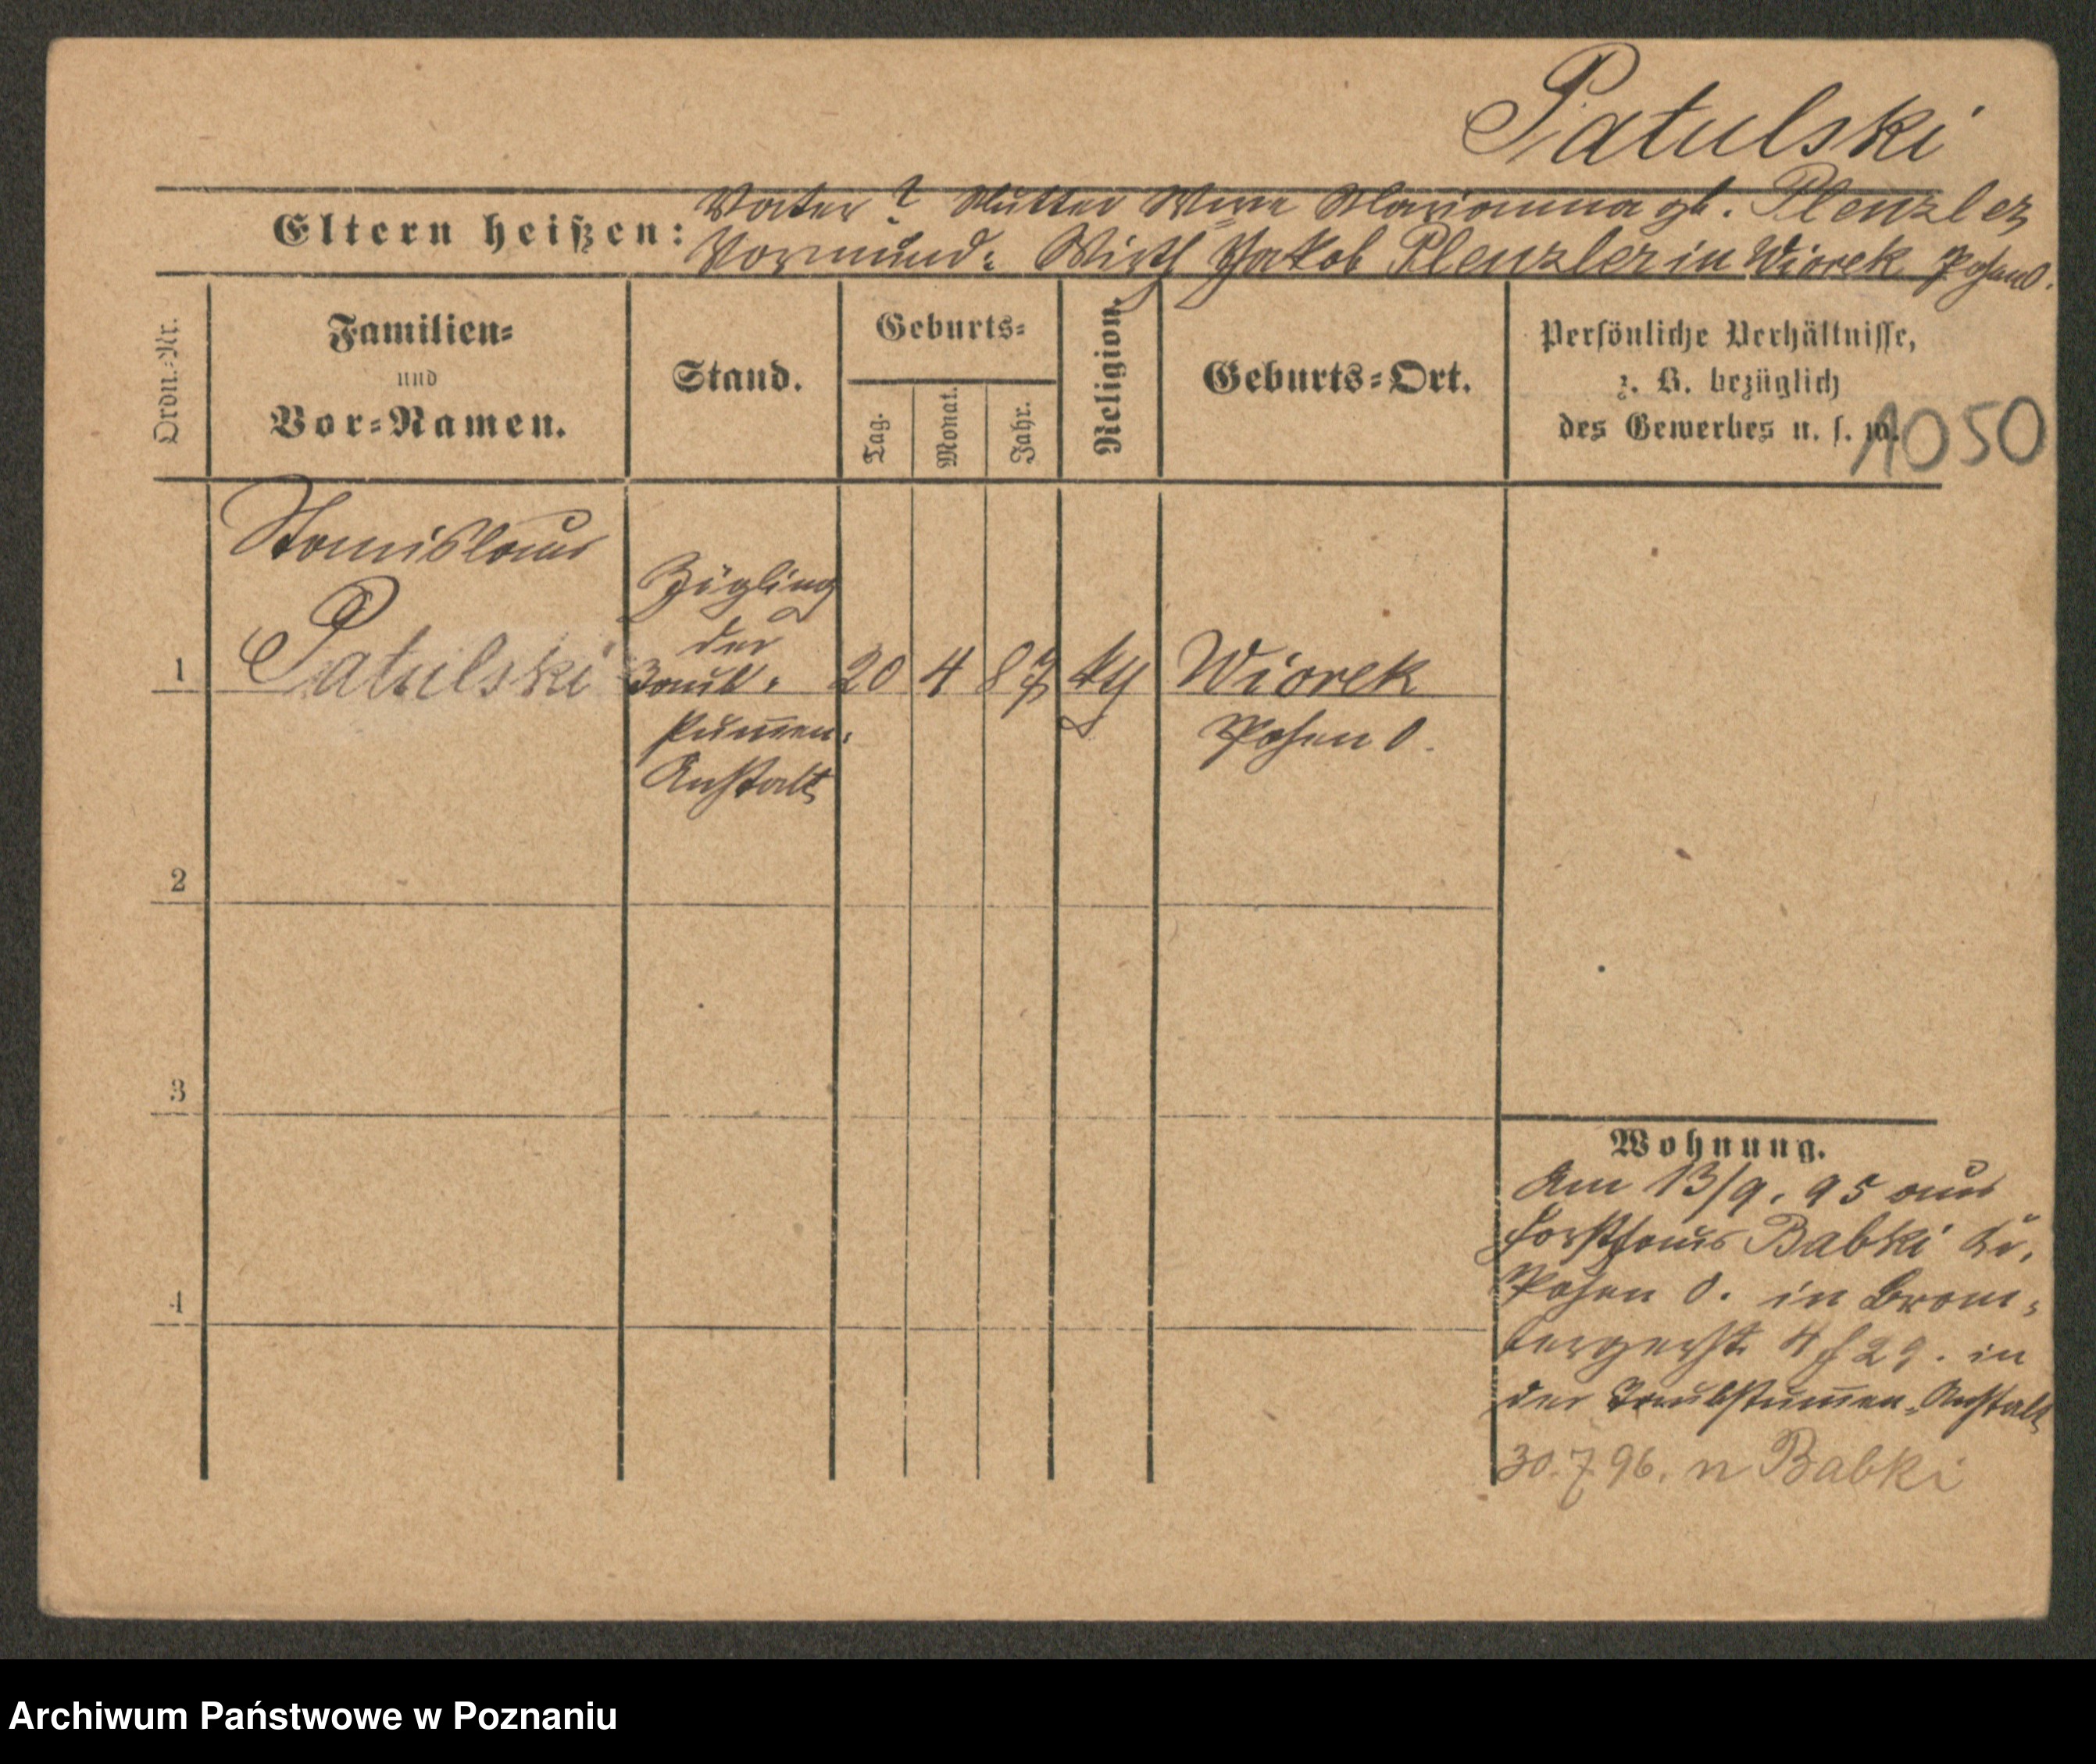 Patulski
Eltern heißen: Vater? Mutter Wwe Marianna gb. Plenzler
Vormund: Wirth Jakob Plenzler in Wiorek Posen O.
Ordn.-Nr.
Familien-
und
Vor-Namen.
Stand.
Geburts-
Tag.
Monat.
Jahr.
Religion.
Geburts-Ort.
Persönliche Verhältnisse,
z. B. bezüglich
des Gewerbes u. s. w.
1050
Stanislaus
Patulski
Zögling
der
Taub-
stum̅en-
Anstalt
1
20 4 87 kth
Wiorek
Posen O.
2
3
4
Wohnung.
Am 13/9. 95 aus
Forsthaus Babki Kr.
Posen O. in Brom-
bergerst. 4 f 29. in
der Taubstum̅en-Anstalt
30.7.96. n Babki
Archiwum Państwowe w Poznaniu